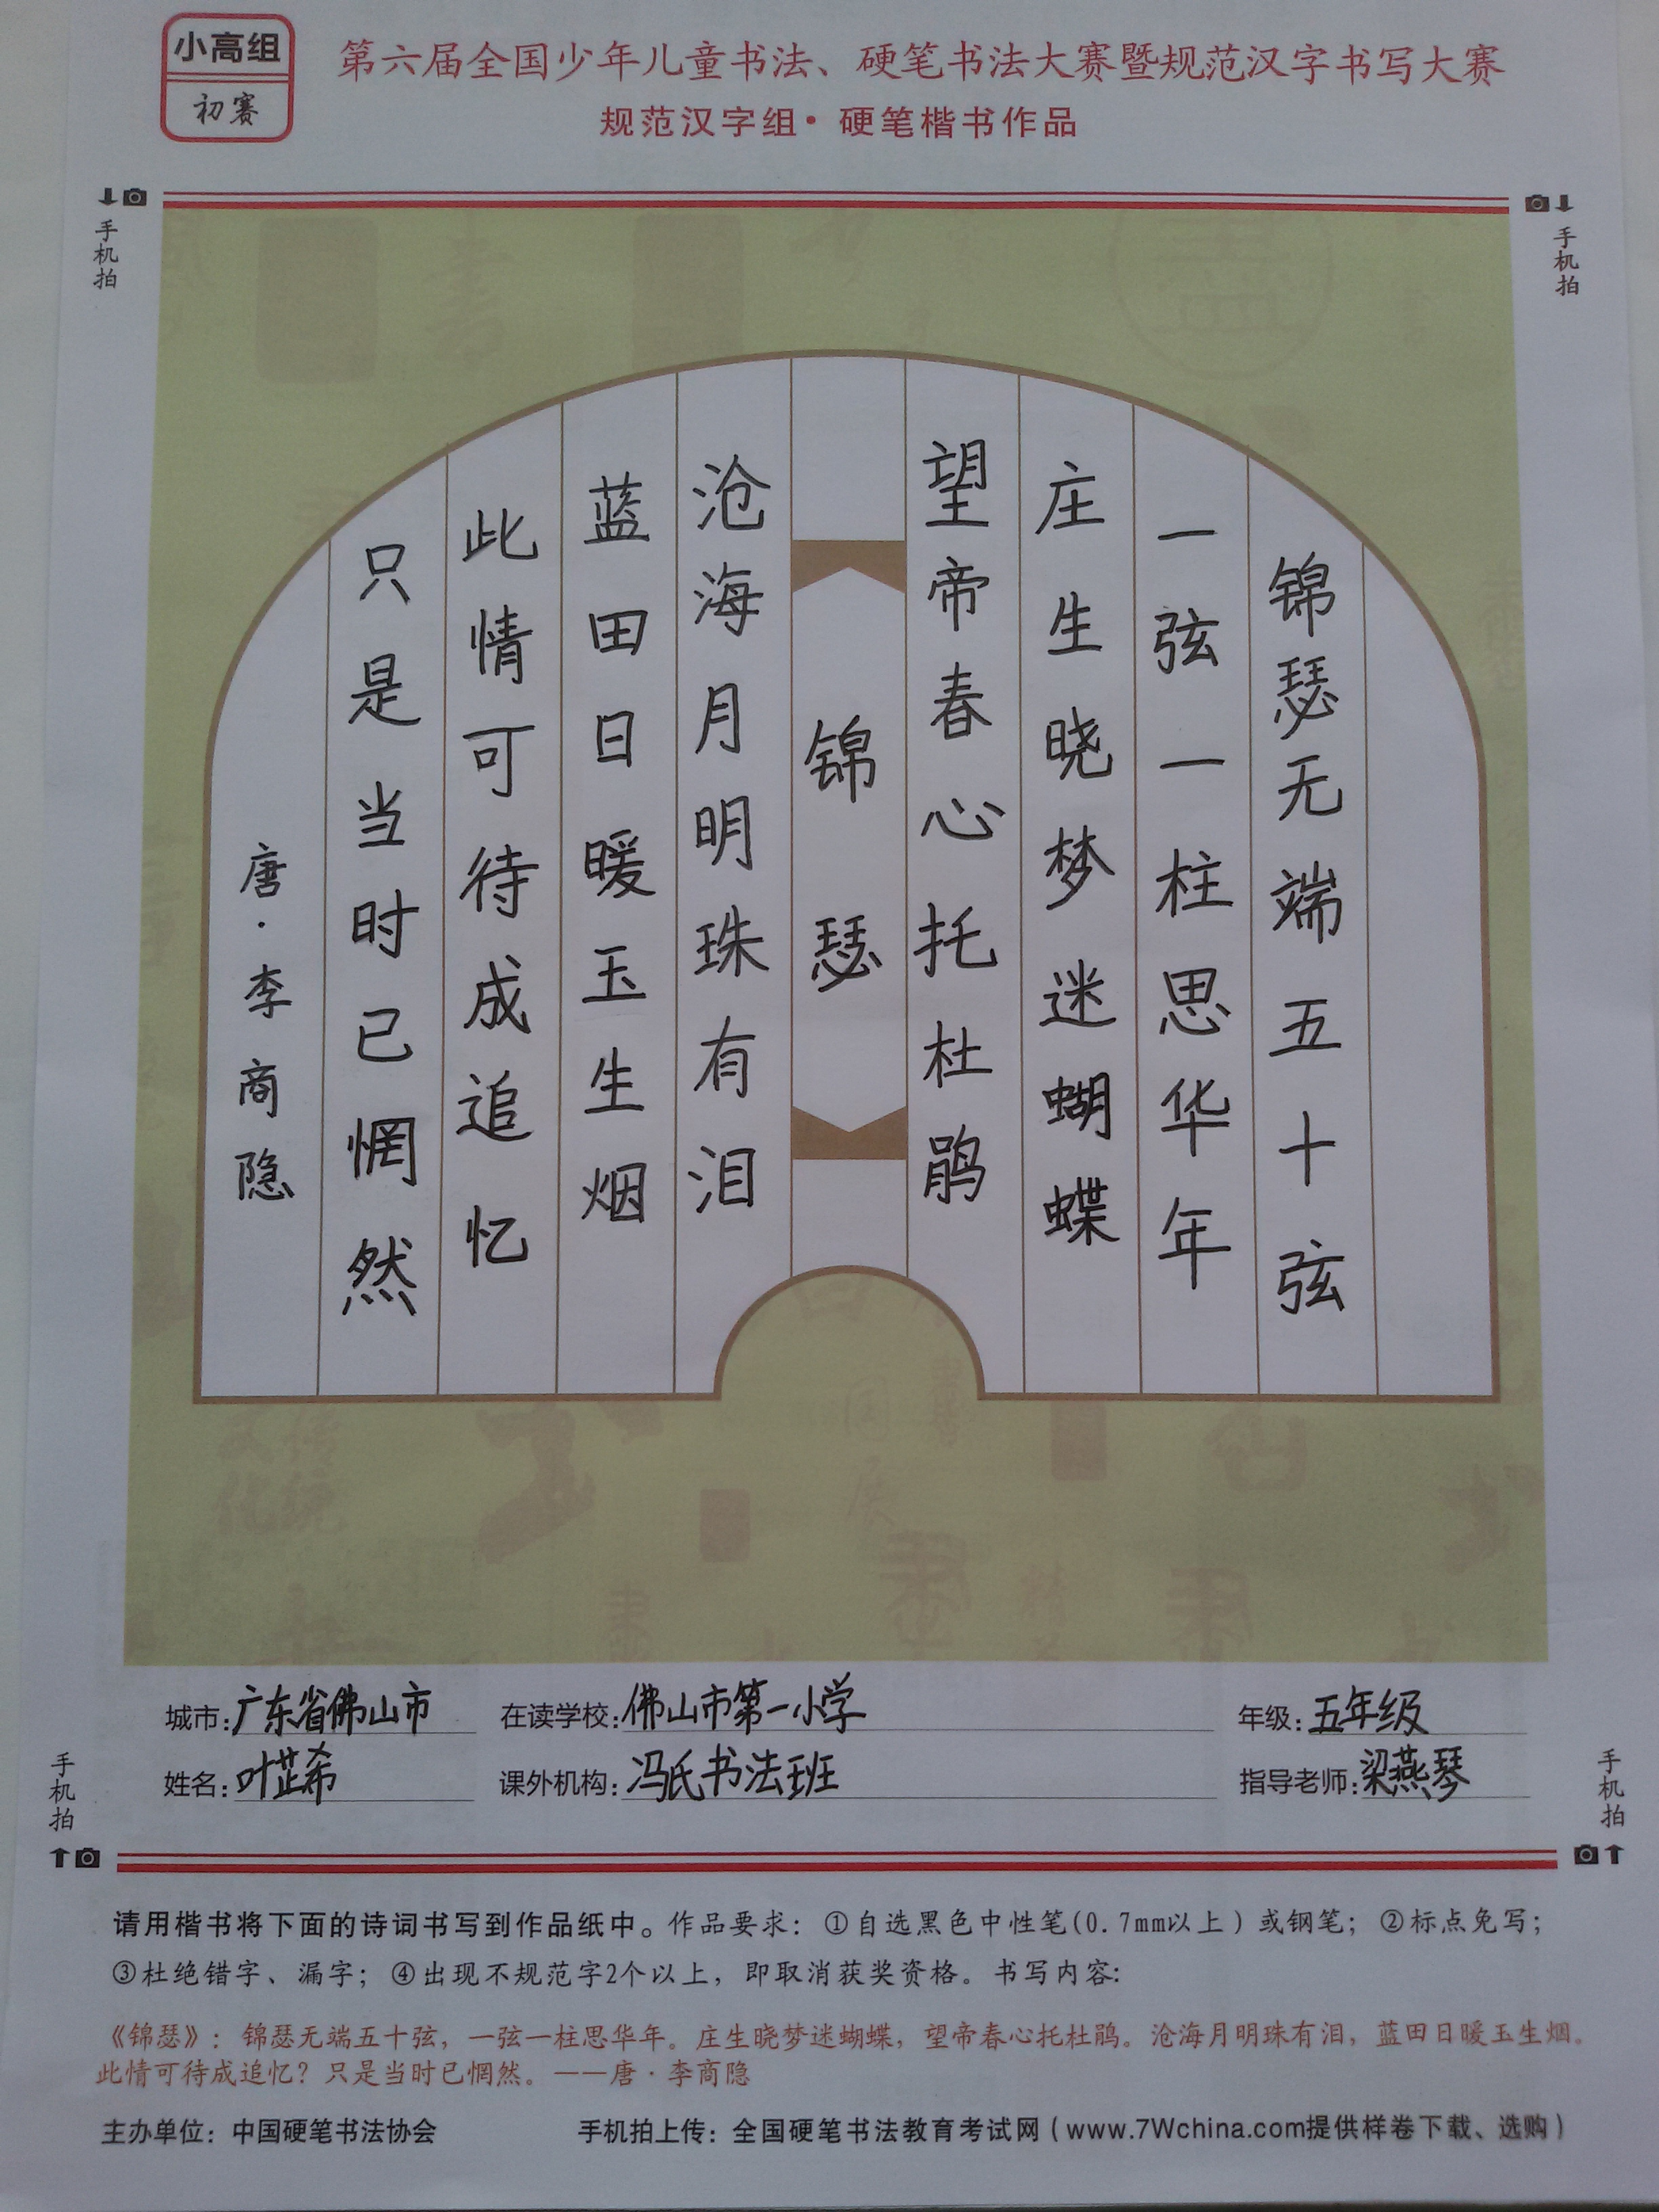 小高组
初赛
第六届全国少年儿童书法、硬笔书法大赛暨规范汉字书写大赛
规范汉字组·硬笔楷书作品
手机拍
手机拍
锦瑟无端五十弦
一弦一柱思华年
庄生晓梦迷蝴蝶
望帝春心托杜鹃
锦瑟
沧海月明珠有泪
蓝田日暖玉生烟
此情可待成追忆
只是当时已惘然
唐·李商隐
城市:广东省佛山市 在读学校:佛山市第一小学 年级:五年级
姓名:叶芷希 课外机构:冯氏书法班 指导老师:梁燕琴
手机拍
手机拍
请用楷书将下面的诗词书写到作品纸中。作品要求：①自选黑色中性笔(0.7mm以上)或钢笔；②标点免写；
③杜绝错字、漏字；④出现不规范字2个以上，即取消获奖资格。书写内容:
《锦瑟》：锦瑟无端五十弦，一弦一柱思华年。庄生晓梦迷蝴蝶，望帝春心托杜鹃。沧海月明珠有泪，蓝田日暖玉生烟。
此情可待成追忆？只是当时已惘然。——唐·李商隐
主办单位：中国硬笔书法协会 手机拍上传：全国硬笔书法教育考试网（www.7Wchina.com提供样卷下载、选购）